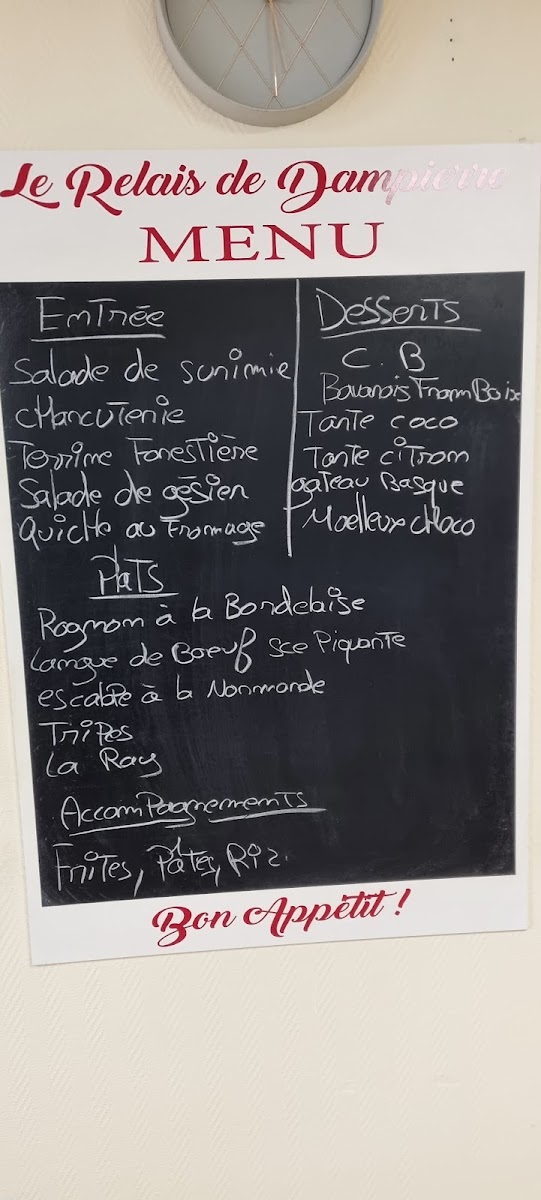 Le Relais de Dampierre
MENU
Entrée
Salade de surimie
charcuterie
Terrine Forestière
Salade de gésier
quiche au Fromage
Plats
Rognom à la Bordelaise
Langue de Boeuf sce Piquante
escalpe à la Normande
Tripes
La Ray
Accompagnements
Frites, Pâtes, Riz.
Desserts
C. B
Bavarois FramBoise
Tarte coco
Tarte citrom
gateau Basque
Moelleux choco
Bon Appétit !